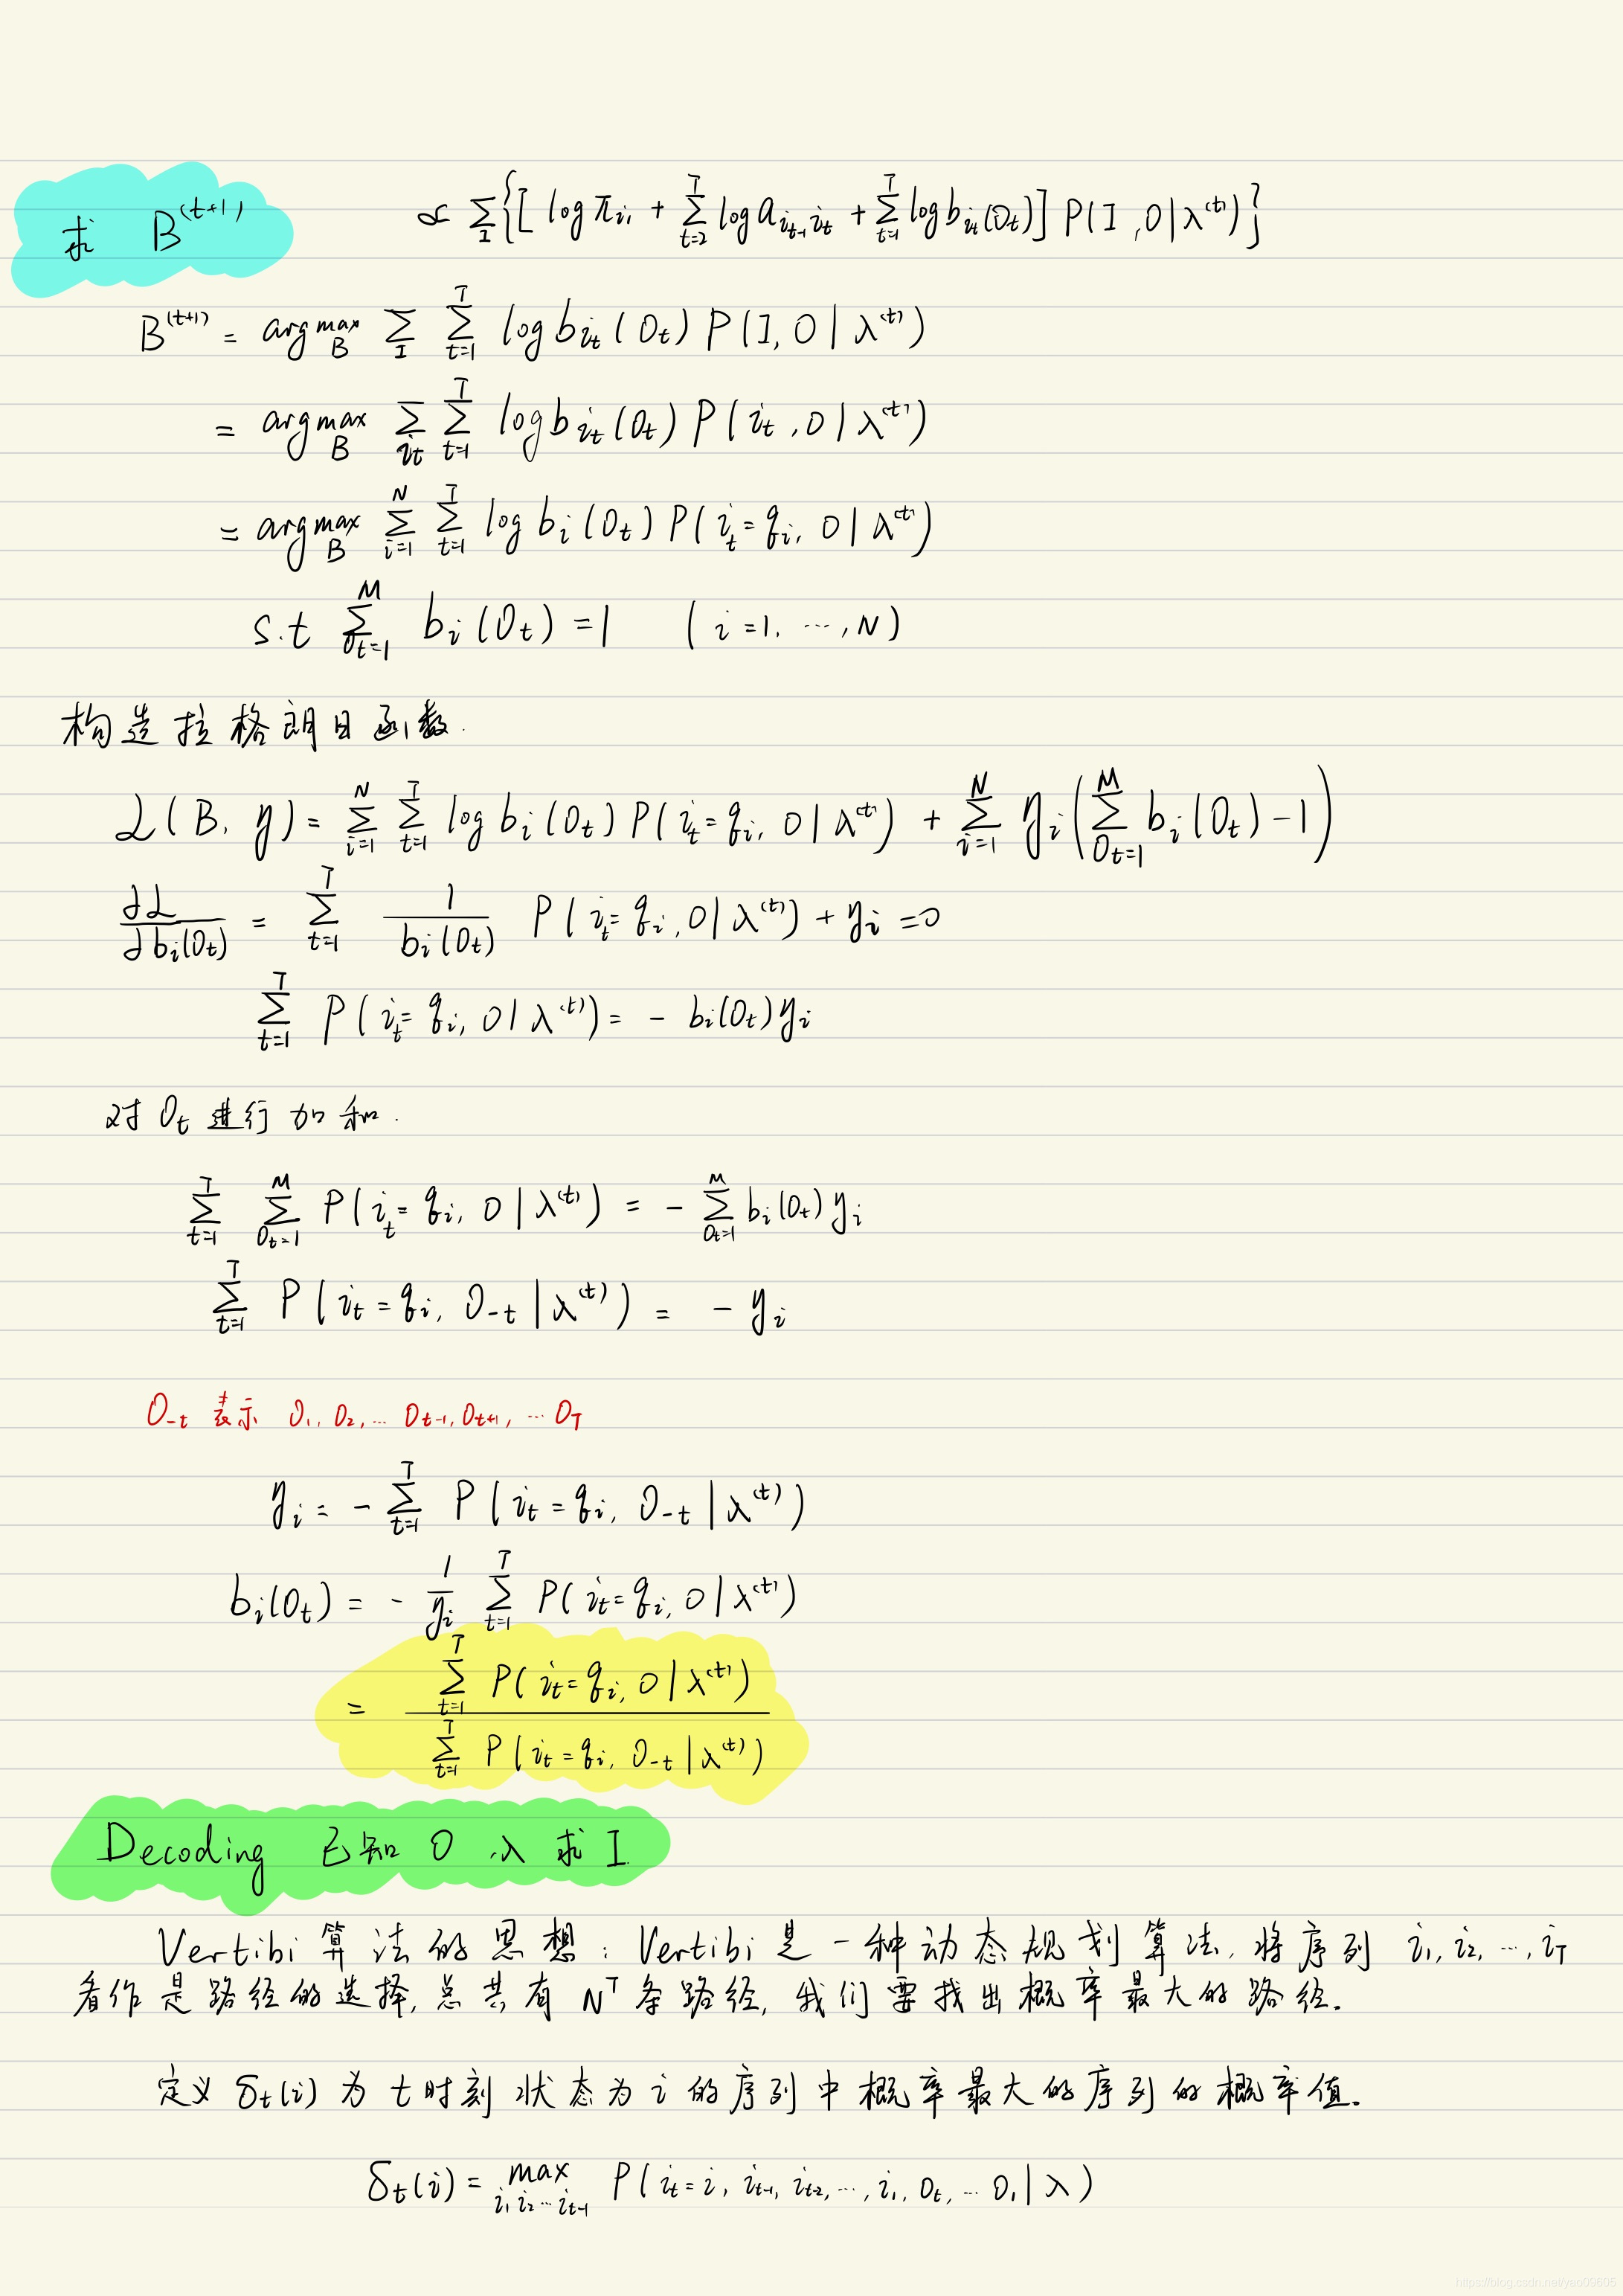 求 B^(t+1) ∝ Σ_I {[ log π_{i_1} + Σ_{t=2}^T log a_{i_{t-1} i_t} + Σ_{t=1}^T log b_{i_t}(O_t) ] P(I, O | λ^(t)) }
B^(t+1) = arg max_B Σ_I Σ_{t=1}^T log b_{i_t}(O_t) P(I, O | λ^(t))
= arg max_B Σ_{i_t} Σ_{t=1}^T log b_{i_t}(O_t) P(i_t, O | λ^(t))
= arg max_B Σ_{i=1}^N Σ_{t=1}^T log b_i(O_t) P(i_t = q_i, O | λ^(t))
s.t Σ_{O_t=1}^M b_i(O_t) = 1 (i = 1, …, N)
构造拉格朗日函数.
L(B, η) = Σ_{i=1}^N Σ_{t=1}^T log b_i(O_t) P(i_t = q_i, O | λ^(t)) + Σ_{i=1}^N η_i ( Σ_{O_t=1}^M b_i(O_t) - 1 )
∂L / ∂b_i(O_t) = Σ_{t=1}^T 1 / b_i(O_t) P(i_t = q_i, O | λ^(t)) + η_i = 0
Σ_{t=1}^T P(i_t = q_i, O | λ^(t)) = - b_i(O_t) η_i
对 O_t 进行加和.
Σ_{t=1}^T Σ_{O_t=1}^M P(i_t = q_i, O | λ^(t)) = - Σ_{O_t=1}^M b_i(O_t) η_i
Σ_{t=1}^T P(i_t = q_i, O_{-t} | λ^(t)) = - η_i
O_{-t} 表示 O_1, O_2, … O_{t-1}, O_{t+1}, … O_T
η_i = - Σ_{t=1}^T P(i_t = q_i, O_{-t} | λ^(t))
b_i(O_t) = - 1/η_i Σ_{t=1}^T P(i_t = q_i, O | λ^(t))
= Σ_{t=1}^T P(i_t = q_i, O | λ^(t)) / Σ_{t=1}^T P(i_t = q_i, O_{-t} | λ^(t))
Decoding 已知 O, λ 求 I
Vertibi 算法的思想: Vertibi 是一种动态规划算法, 将序列 i_1, i_2, …, i_T
看作是路径的选择, 总共有 N^T 条路径, 我们要找出概率最大的路径.
定义 δ_t(i) 为 t 时刻状态为 i 的序列中概率最大的序列的概率值.
δ_t(i) = max_{i_1 i_2 … i_{t-1}} P(i_t = i, i_{t-1}, i_{t-2}, …, i_1, O_t, … O_1 | λ)
https://blog.csdn.net/yao09605